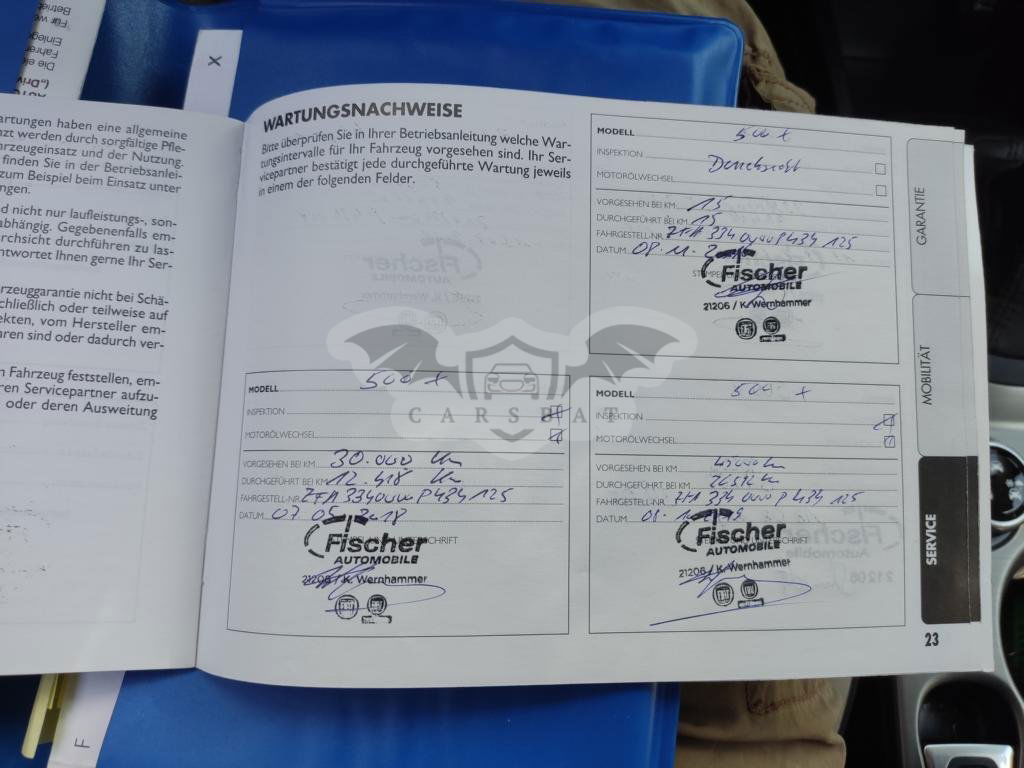 X
artungen haben eine allgemeine
nzt werden durch sorgfältige Pfle-
hrzeugeinsatz und der Nutzung.
finden Sie in der Betriebsanlei-
zum Beispiel beim Einsatz unter
ngen.
d nicht nur laufleistungs-, son-
abhängig. Gegebenenfalls em-
rchsicht durchführen zu las-
ntwortet Ihnen gerne Ihr Ser-
rzeuggarantie nicht bei Schä-
schließlich oder teilweise auf
ekten, vom Hersteller em-
hren sind oder dadurch ver-
n Fahrzeug feststellen, em-
ren Servicepartner aufzu-
oder deren Ausweitung
WARTUNGSNACHWEISE
Bitte überprüfen Sie in Ihrer Betriebsanleitung welche War-
tungsintervalle für Ihr Fahrzeug vorgesehen sind. Ihr Ser-
vicepartner bestätigt jede durchgeführte Wartung jeweils
in einem der folgenden Felder.
MODELL 500 X
INSPEKTION
MOTORÖLWECHSEL
VORGESEHEN BEI KM 15
DURCHGEFÜHRT BEI KM 15
FAHRGESTELL-NR. ZFA 334 000 P434 125
DATUM 08. 11.
Fischer
AUTOMOBILE
21206 / K. Wernhammer
MODELL 500 X
INSPEKTION
MOTORÖLWECHSEL
VORGESEHEN BEI KM 30.000 km
DURCHGEFÜHRT BEI KM 12.418 km
FAHRGESTELL-NR. ZFA 334000 P434 125
DATUM 07 05 2018
Fischer
AUTOMOBILE
21206 / K. Wernhammer
MODELL 500 X
INSPEKTION
MOTORÖLWECHSEL
VORGESEHEN BEI KM
DURCHGEFÜHRT BEI KM
FAHRGESTELL-NR. ZFA 334 000 P434 125
DATUM 08.
Fischer
AUTOMOBILE
21206 / K. Wernhammer
CARSBAT
GARANTIE
MOBILITÄT
SERVICE
23
F